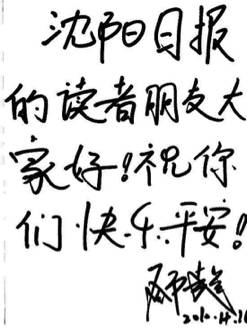 沈阳日报
的读者朋友大
家好!祝你
们快乐.平安!
2010.4.11